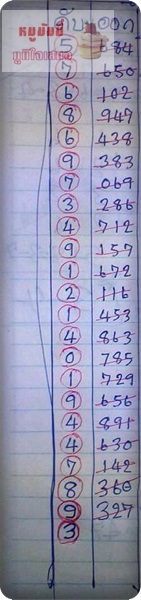 ดับบอด
หมูมัมมี่
ภูมิใจเสนอ
5 684
7 650
6 102
8 947
6 438
9 383
7 069
3 286
4 712
9 157
1 672
2 116
1 453
4 863
0 785
1 729
9 656
4 891
4 630
7 142
8 360
9 327
3